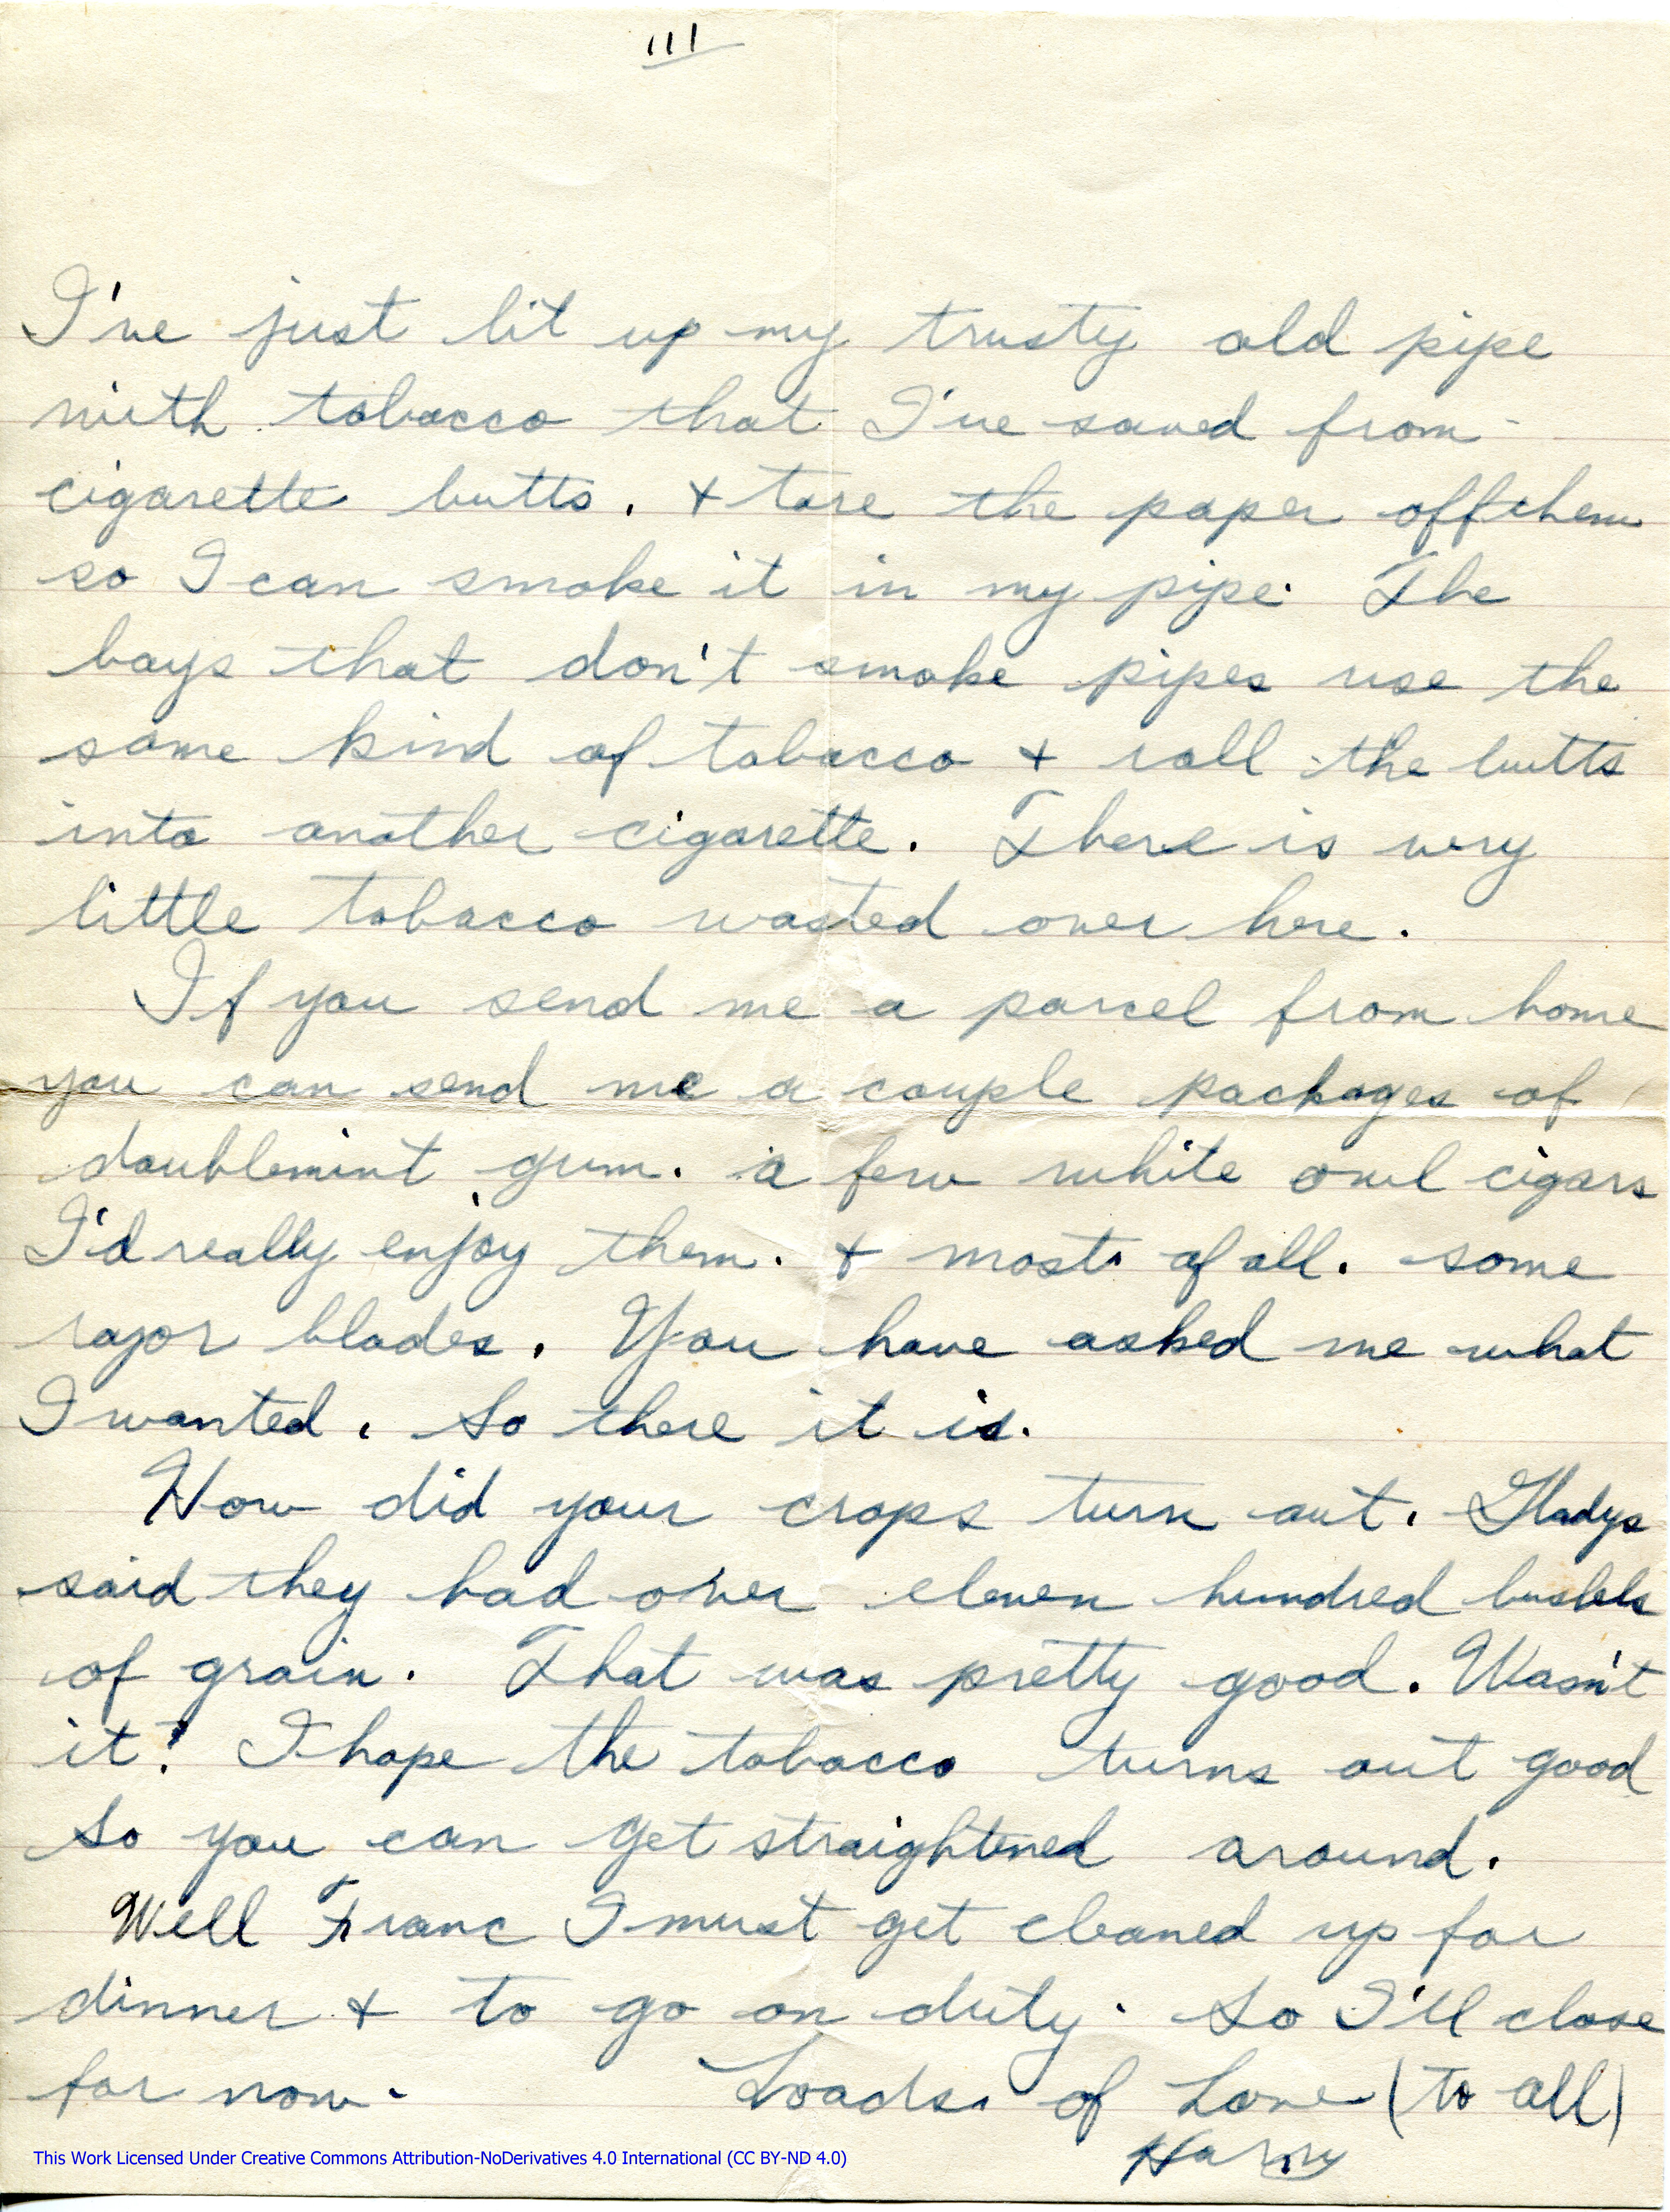 III
I've just lit up my trusty old pipe
with tobacco that I've saved from
cigarette butts. + tore the paper off them
so I can smoke it in my pipe. The
boys that don't smoke pipes use the
same kind of tobacco + roll the butts
into another cigarette. There is very
little tobacco wasted over here.
If you send me a parcel from home
you can send me a couple packages of
doublemint gum. a few white owl cigars
I'd really enjoy them. + most of all. some
razor blades. You have asked me what
I wanted. So there it is.
How did your crops turn out. Gladys
said they had over eleven hundred bushels
of grain. That was pretty good. Wasn't
it? I hope the tobacco turns out good
So you can get straightened around.
Well Franc I must get cleaned up for
dinner + to go on duty. So I'll close
for now. Loads of Love (to all)
Harry
This Work Licensed Under Creative Commons Attribution-NoDerivatives 4.0 International (CC BY-ND 4.0)